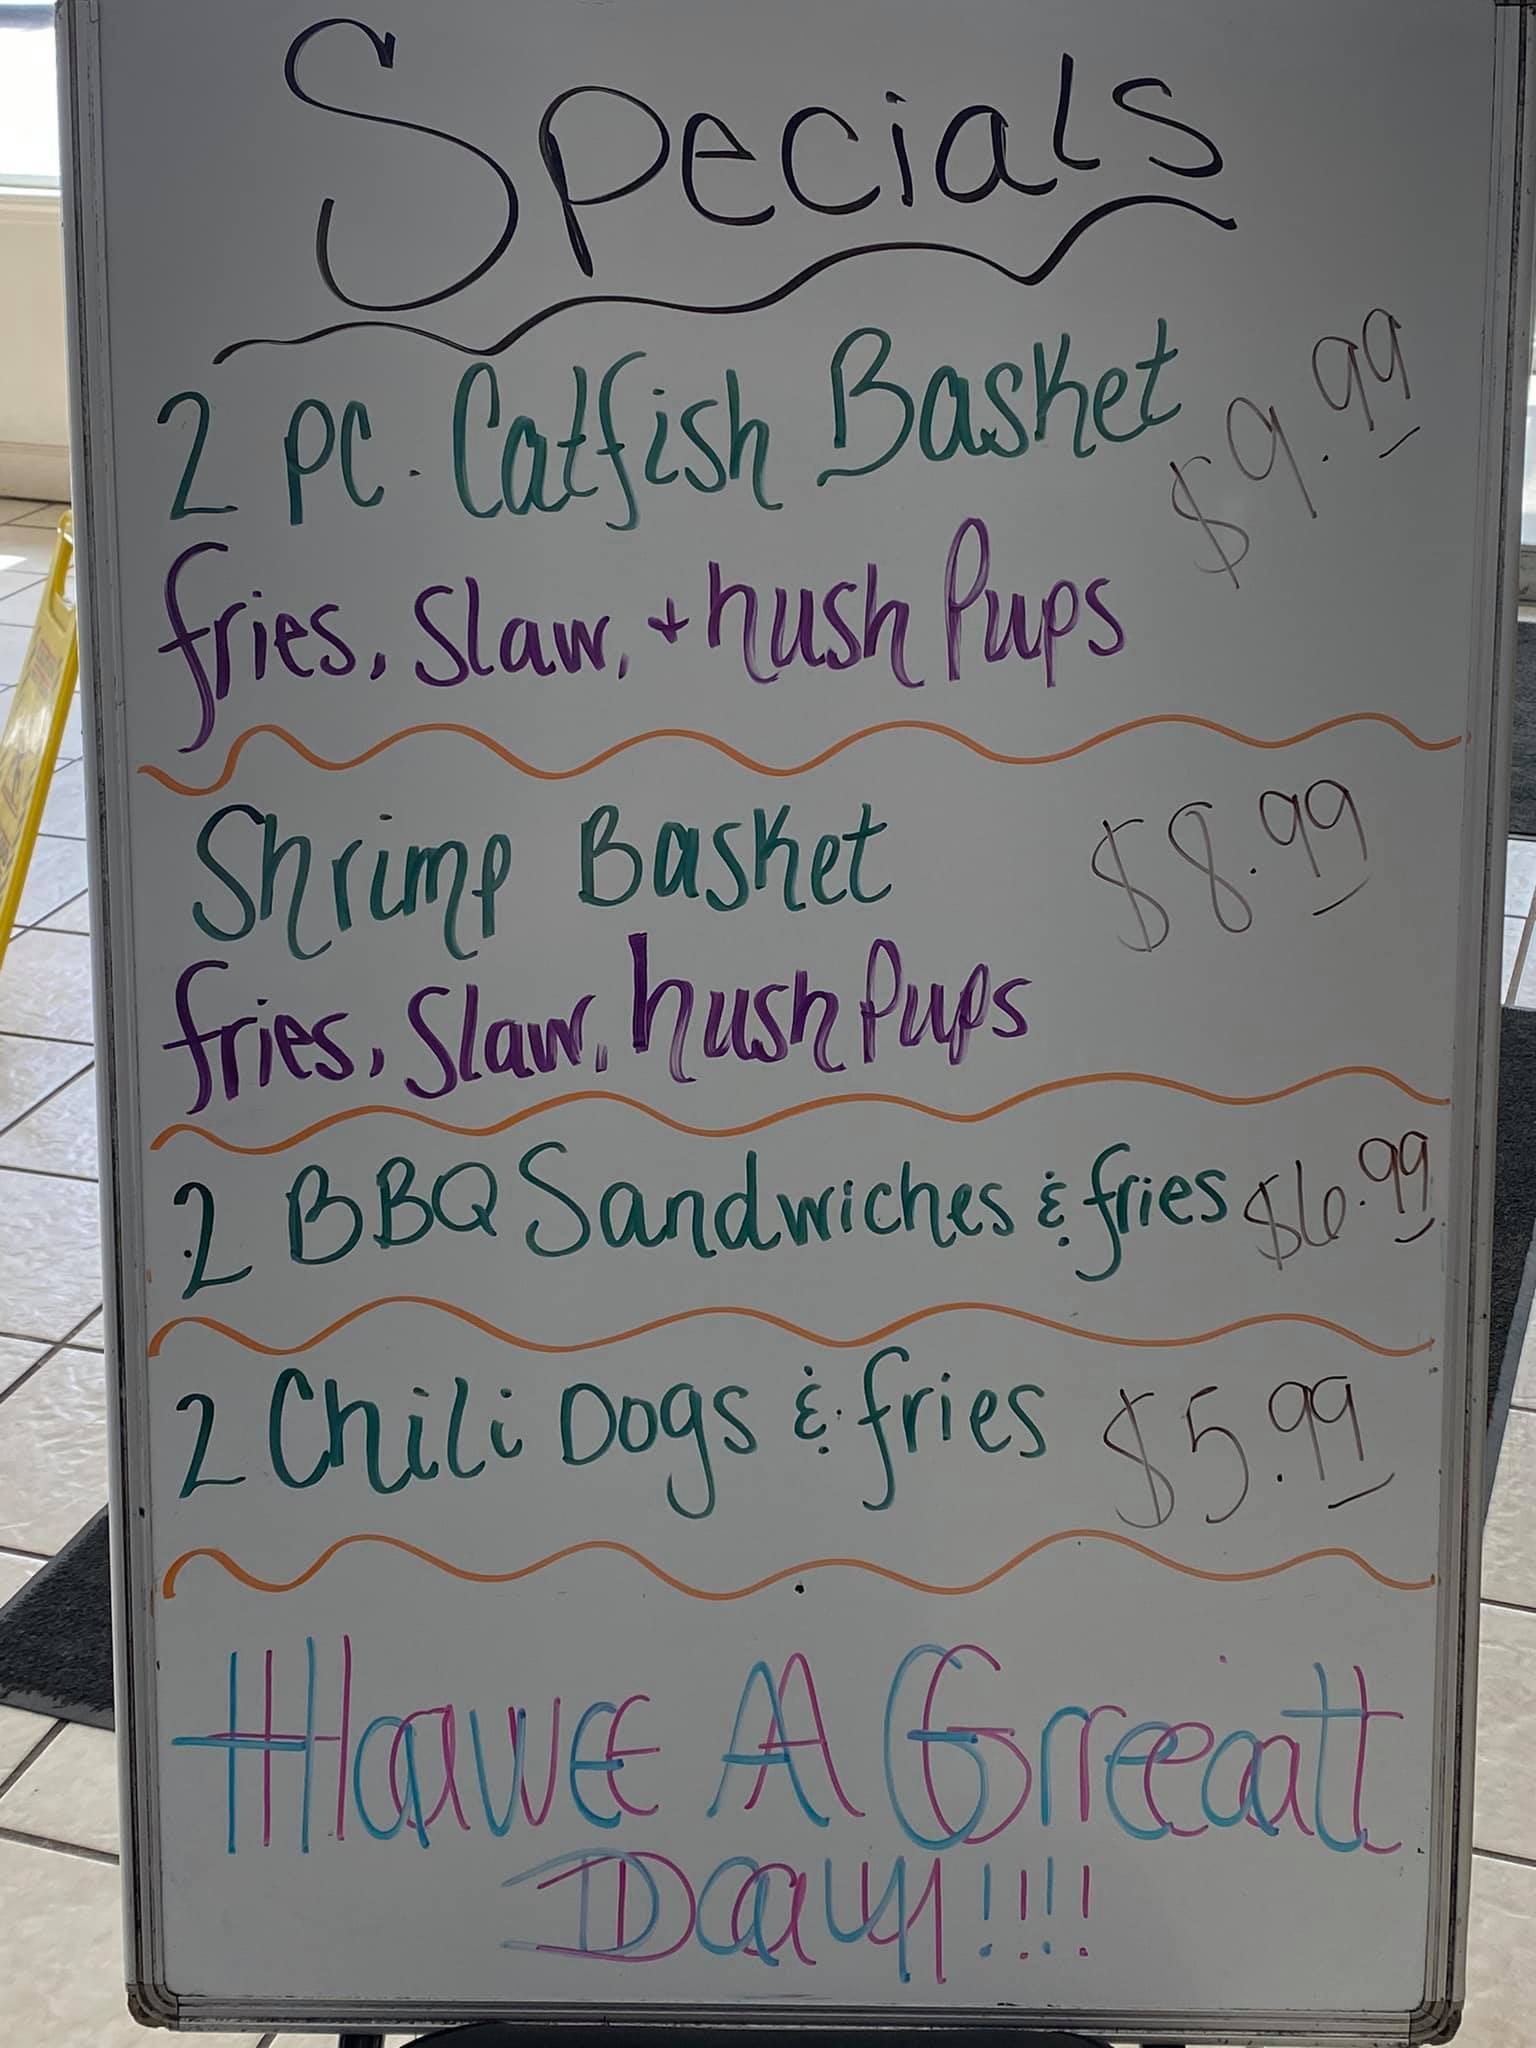 Specials
2 PC. Catfish Basket $9.99
fries, Slaw, + hush Pups
Shrimp Basket $8.99
fries, Slaw, hush Pups
2 BBQ Sandwiches & fries $6.99
2 Chili Dogs & fries $5.99
Have A Great
Day!!!!